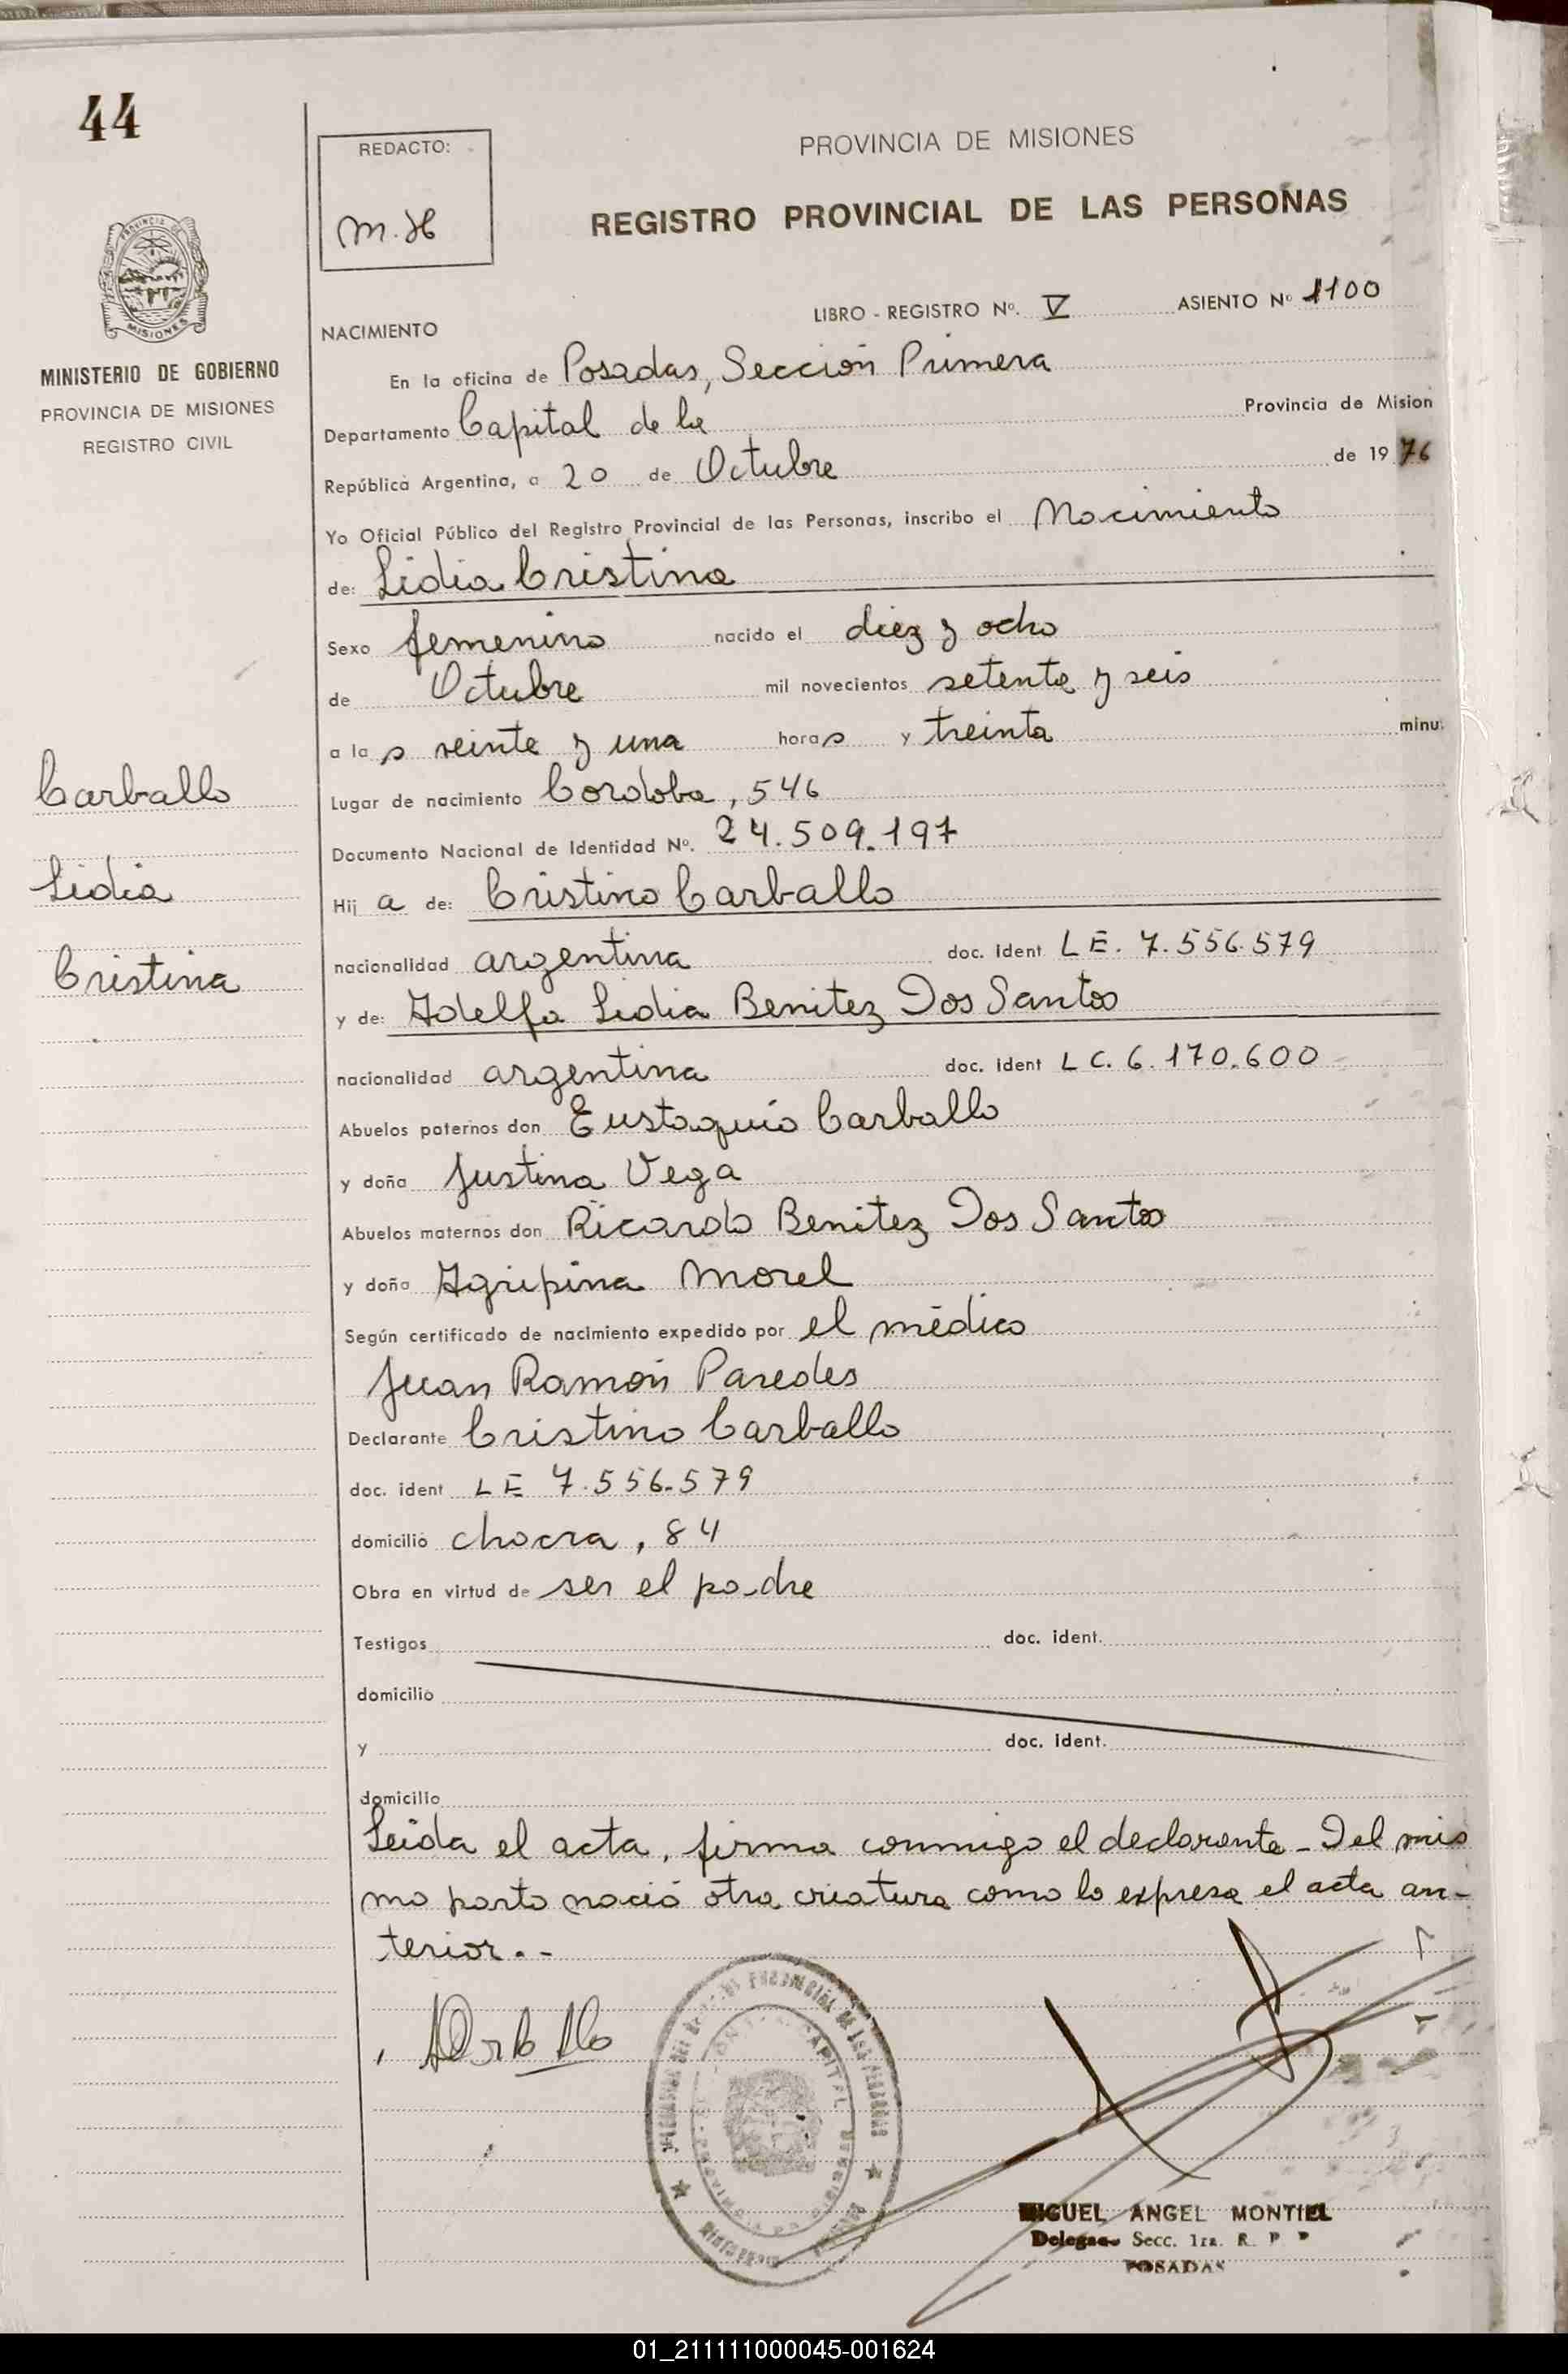 44
REDACTO:
M. H
PROVINCIA DE MISIONES
REGISTRO PROVINCIAL DE LAS PERSONAS
PROVINCIA DE
MISIONES
MINISTERIO DE GOBIERNO
PROVINCIA DE MISIONES
REGISTRO CIVIL
LIBRO - REGISTRO Nº. V ASIENTO Nº 1100
NACIMIENTO
En la oficina de Posadas, Sección Primera
Departamento Capital de la Provincia de Mision
República Argentina, a 20 de Octubre de 1976
Yo Oficial Público del Registro Provincial de las Personas, inscribo el Nacimiento
de: Lidia Cristina
Sexo femenino nacido el diez y ocho
de Octubre mil novecientos setenta y seis
a las veinte y una horas y treinta minu.
Lugar de nacimiento Cordoba, 546
Documento Nacional de Identidad Nº. 24.509.197
Hij a de: Cristino Carballo
nacionalidad argentina doc. Ident LE. 7.556.579
y de: Adelfa Lidia Benitez Dos Santos
nacionalidad argentina doc. Ident LC. 6.170.600
Abuelos paternos don Eustaquio Carballo
y doña Justina Vega
Abuelos maternos don Ricardo Benitez Dos Santos
y doña Agripina Morel
Según certificado de nacimiento expedido por el médico
Juan Ramón Paredes
Declarante Cristino Carballo
doc. ident LE 7.556.579
domicilio chacra, 84
Obra en virtud de ser el padre
Testigos doc. ident.
domicilio
y doc. ident.
domicilio
Leida el acta, firma conmigo el declarante - Del mis
mo parto nació otra criatura como lo expresa el acta an-
terior. -
Carballo
Lidia
Cristina
CAPITAL
MIGUEL ANGEL MONTIEL
Delegado Secc. 1ra. R. P. P
POSADAS
01_211111000045-001624